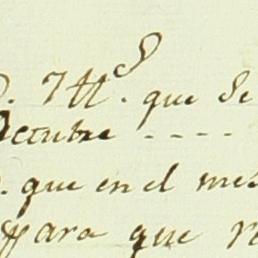 que Se
Octubre - - - -
que en el mes
para que